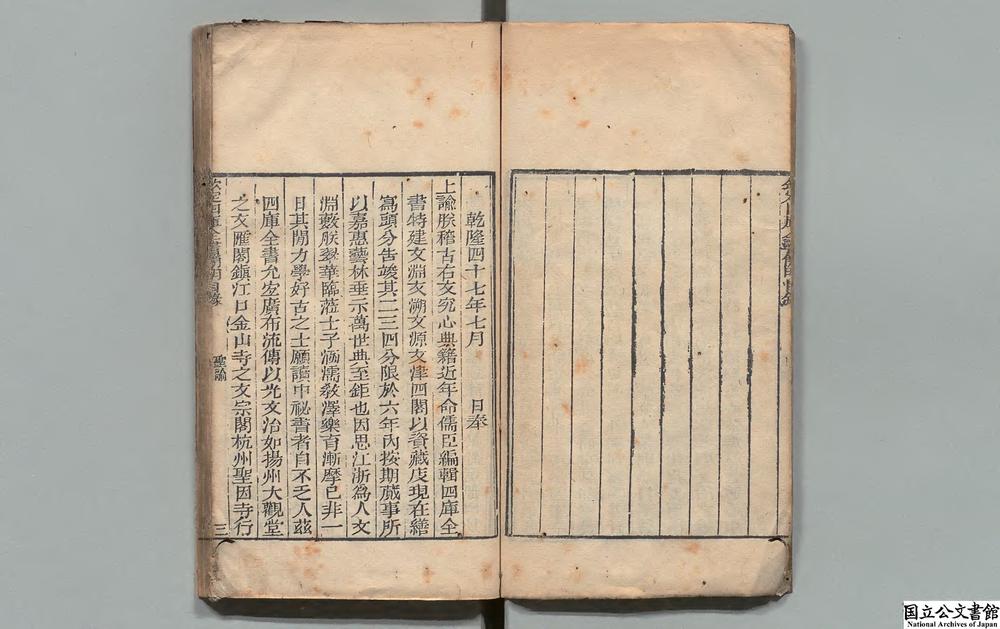 乾隆四十七年七月 日奉
上諭朕稽古右文究心典籍近年命儒臣編輯四庫全
書特建文淵文溯文源文津四閣以資藏庋現在繕
寫頭分告竣其二三四分限於六年內按期蕆事所
以嘉惠藝林垂示萬世典至鉅也因思江浙為人文
淵藪朕翠華臨蒞士子涵濡敎澤樂育漸摩已非一
日其間力學好古之士願讀中祕書者自不乏人茲
四庫全書允宜廣布流傳以光文治如揚州大觀堂
之文匯閣鎮江口金山寺之文宗閣杭州聖因寺行
欽定四庫全書簡明目錄
聖諭
三
国立公文書館
National Archives of Japan